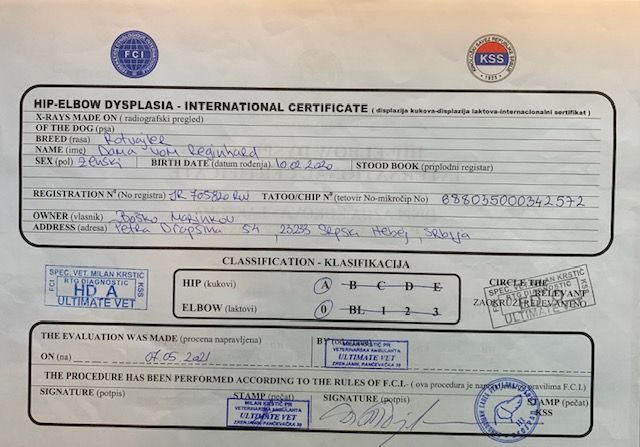 FCI
KSS
HIP-ELBOW DYSPLASIA - INTERNATIONAL CERTIFICATE ( displazija kukova-displazija laktova-internacionalni sertifikat )
X-RAYS MADE ON ( radiografski pregled)
OF THE DOG (psa)
BREED (rasa) Rotvajler
NAME (ime) Dama Vom Reginhard
SEX (pol) ženski BIRTH DATE (datum rođenja) 10.02.2020 STOOD BOOK (priplodni registar)
REGISTRATION Nº (No registra) JR 705820 RW TATOO/CHIP Nº (tetovir No-mikročip No) 688035000342572
OWNER (vlasnik) Boško Marinkov
ADDRESS (adresa) Petra Drapšina 54, 23233 Srpska , Srbija
CLASSIFICATION - KLASIFIKACIJA
FCI SPEC. VET. MILAN KRSTIĆ KSS
RTG DIAGNOSTIC
HD A
ULTIMATE VET
HIP (kukovi) A B C D E
ELBOW (laktovi) 0 BL 1 2 3
CIRCLE THE
RELEVANT
SPEC. VET. MILAN KRSTIĆ
ULTIMATE VET
THE EVALUATION WAS MADE (procena napravljena) BY
ON (na) 07.05.2021
VETERINARSKA AMBULANTA
ULTIMATE VET
ZRENJANIN, PANČEVAČKA 39
THE PROCEDURE HAS BEEN PERFORMED ACCORDING TO THE RULES OF F.C.I.- ( ova procedura je pravilima F.C.I.)
SIGNATURE (potpis) STAMP (pečat) SIGNATURE (potpis) STAMP (pečat)
KSS
MILAN KRSTIĆ PR
VETERINARSKA AMBULANTA
ULTIMATE VET
ZRENJANIN, PANČEVAČKA 39